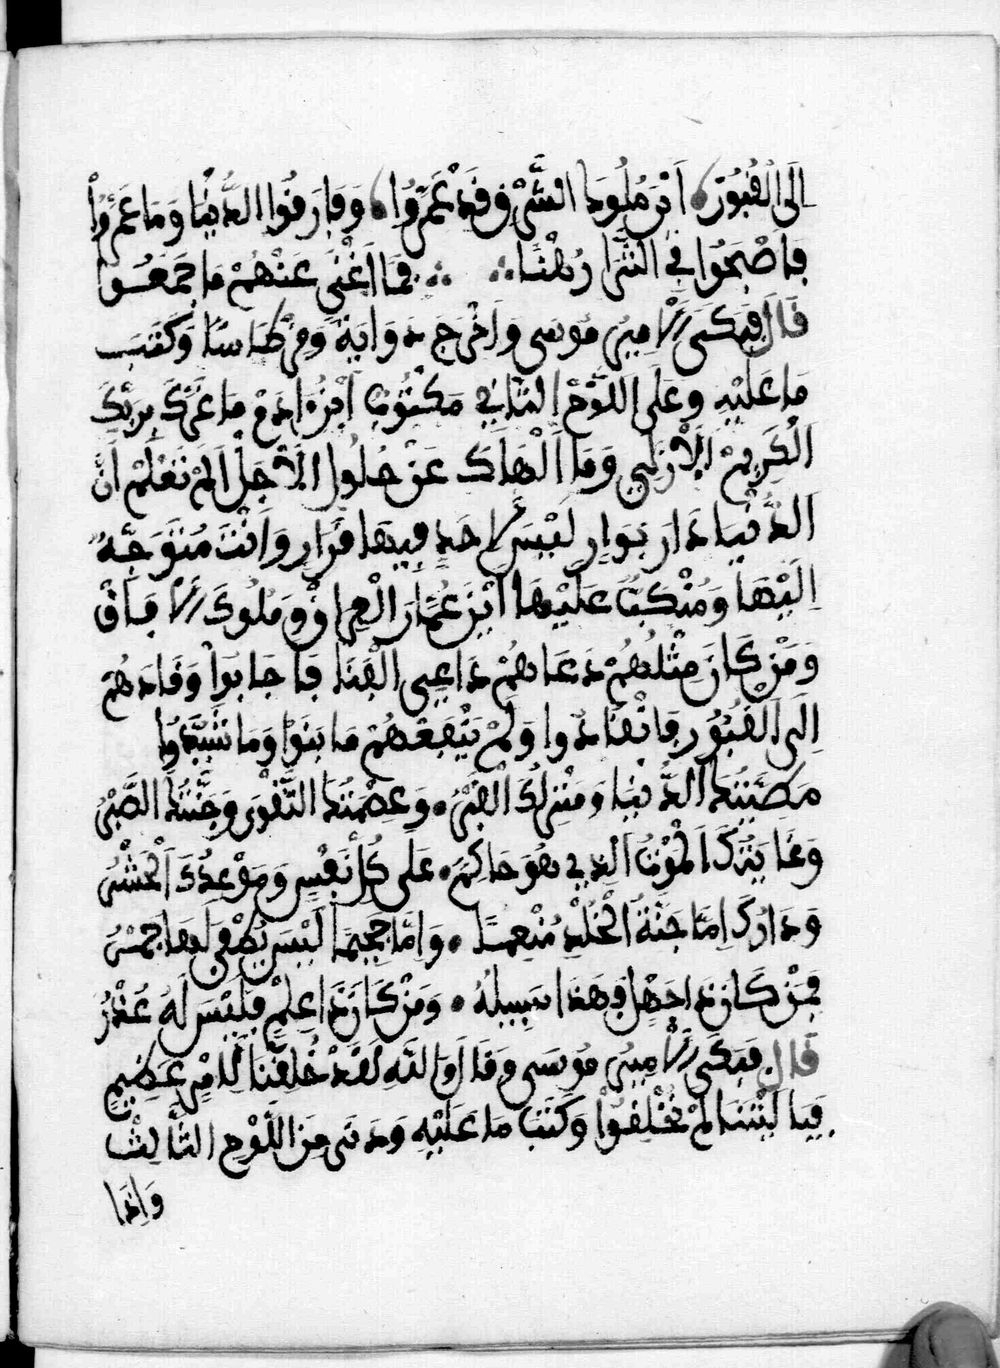 الَى الْقُبُورِ، اَيْنَ مُلُوكُ الشَّرْقِ قَدْ عَمَّرُوا، وَفَارَقُوا الدُّنْيَا وَمَا عَمَّرُوا
فَاصْبَحُوا فِي الثَّرَا رُهْنًا فَمَا اَغْنَى عَنْهُمْ مَا جَمَعُوا
قَالَ فَبَكَى الْاَمِيرُ مُوسَى وَاَخْرَجَ دَوَايَةً وَقِرْطَاسًا وَكَتَبَ
مَا عَلَيْهِ وَعَلَى اللَّوْحِ الثَّانِي مَكْتُوبًا اَبْنَ ادَمَ مَا غَرَّكَ بِرَبِّكَ
الْكَرِيمِ الْاَزَلِي وَمَا اَلْهَاكَ عَنْ حُلُولِ الْاَجَلِ اَلَمْ تَعْلَمْ اَنَّ
الدُّنْيَا دَارُ بَوَارٍ لَيْسَ لِاَحَدٍ فِيهَا قَرَارٍ وَاَنْتَ مُتَوَجِّهٌ
اِلَيْهَا وَمُنْكَبًّا عَلَيْهَا اَيْنَ عُمَّارُ الْعِرَاقْ وَمُلُوكَ الْاَفَاقْ
وَمَنْ كَانَ مِثْلُهُمْ دَعَاهُمْ دَاعِي الْفَنَا فَاجَابَوْا وَقَادَهُمْ
اِلَى الْقُبُورِ فَانْقَادُوا وَلَمْ يَنْفَعْهُمْ مَا بَنَوْا وَمَا شَيَّدُوا
مَطِيَّتُكَ الدُّنْيَا وَمَنْزِلُكَ الْقَبْرُ، وَعِصْمَتُكَ التَّقْوَى وَجُنَّتُكَ الصَّبْرُ
وَغَايَتُكَ الْمَوْتُ الَّذِي هُوَ حَاكِمٌ، عَلَى كُلِّ نَفْسٍ وَمَوْعِدُكَ الْحَشْرُ
وَدَارُكَ اِمَّا جَنَّةُ الْخُلْدِ مُنْعِمًا، وَاِمَّا جَحِيمًا لَيْسَ يُطْفَى لَهَا جَمْرُ
فَمَنْ كَانَ ذَا جَهْلٍ فَهَذَا سَبِيلُهُ، وَمَنْ كَانَ ذَا عِلْمٍ فَلَيْسَ لَهُ عُذْرُ
قَالَ فَبَكَى الْاَمِيرُ مُوسَى وَقَالَ وَاللَّهِ لَقَدْ خُلِقْنَا لِاَمْرٍ عَظِيمٍ
فَيَا لَيْتَنَا لَمْ نُخْلَقُوا وَكَتَبَ مَا عَلَيْهِ وَدَنَى مِنَ اللَّوْحِ الثَّالِثْ
وَاِذَا